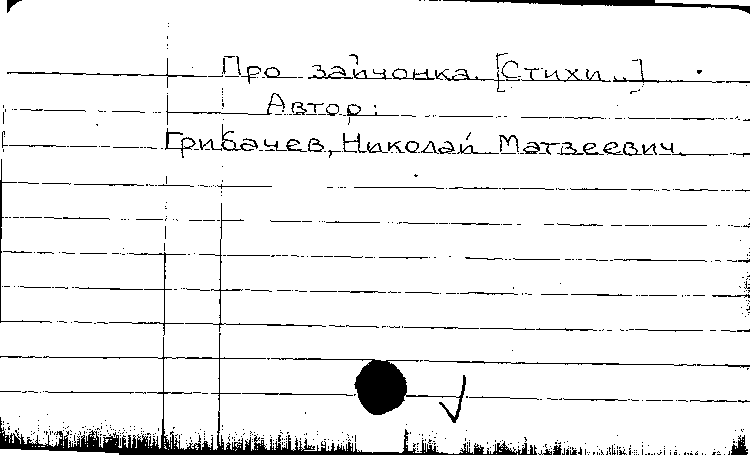 Про зайчонка. [Стихи..]
Автор:
Грибачев, Николай Матвеевич.